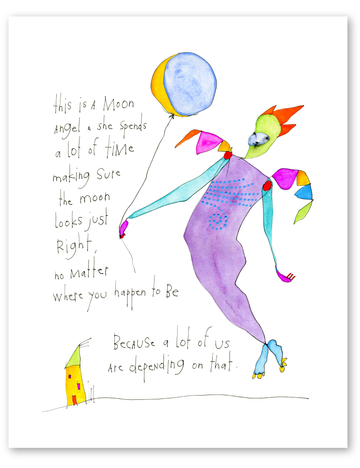 this is a Moon
Angel & she spends
a lot of time
making sure
the moon
looks just
Right,
no matter
where you happen to Be
Because a lot of us
are depending on that.